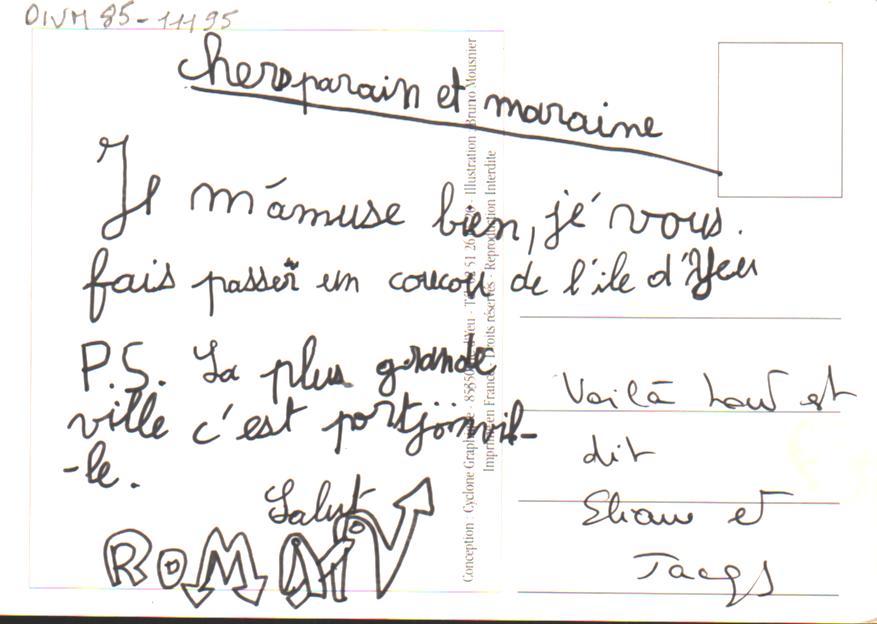 OIVM 85-11195
chers parain et maraine
Je m'amuse bien, je vous.
fais passer un coucou de l'ile d'Yeu
P.S. La plus grande
ville c'est portjoinvil-
-le.
Salut
ROMAIN
Voilà tout est
dit
Eliane et
Jacqs
Conception : Cyclone Graphique - 8585 d'Yeu - Tél. 51 26 - Illustration : Bruno Mousnier
Imprimé en France - Droits réservés - Reproduction Interdite